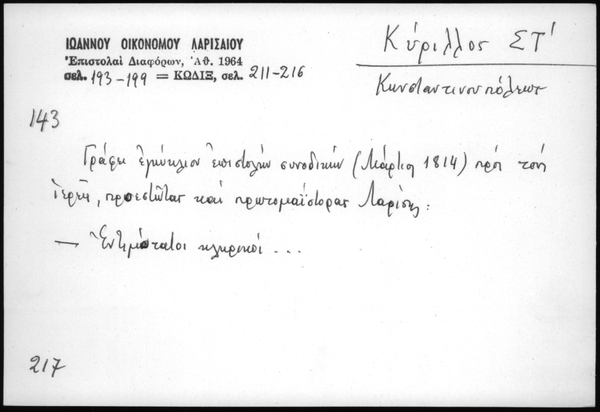 ΙΩΑΝΝΟΥ ΟΙΚΟΝΟΜΟΥ ΛΑΡΙΣΑΙΟΥ
Ἐπιστολαὶ Διαφόρων, Ἀθ. 1964
σελ. 193-199 = ΚΩΔΙΞ, σελ. 211-216
Κύριλλος ΣΤ'
Κωνσταντινουπόλεως
143
Γράφει ἐγκύκλιον ἐπιστολὴν συνοδικὴν (Μάρτιος 1814) πρὸς τοὺς
ἱερεῖς, προεστῶτας καὶ πρωτομαΐστορας Λαρίσης:
— Ἐντιμότατοι κληρικοί ...
217